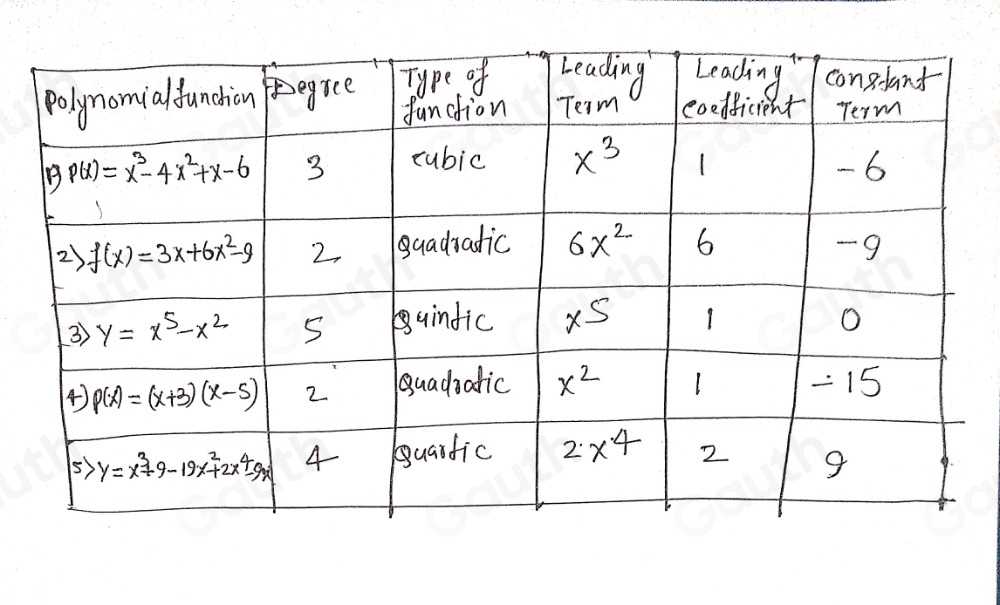 Polynomial function | Degree | Type of function | Leading Term | Leading coefficient | Constant Term
1) P(x) = x³-4x²+x-6 | 3 | cubic | x³ | 1 | -6
2) f(x) = 3x+6x²-9 | 2 | Quadratic | 6x² | 6 | -9
3) Y = x⁵-x² | 5 | Quintic | x⁵ | 1 | 0
4) P(x) = (x+3)(x-5) | 2 | Quadratic | x² | 1 | -15
5) Y = x³+9-19x²+2x⁴-9x | 4 | Quartic | 2·x⁴ | 2 | 9